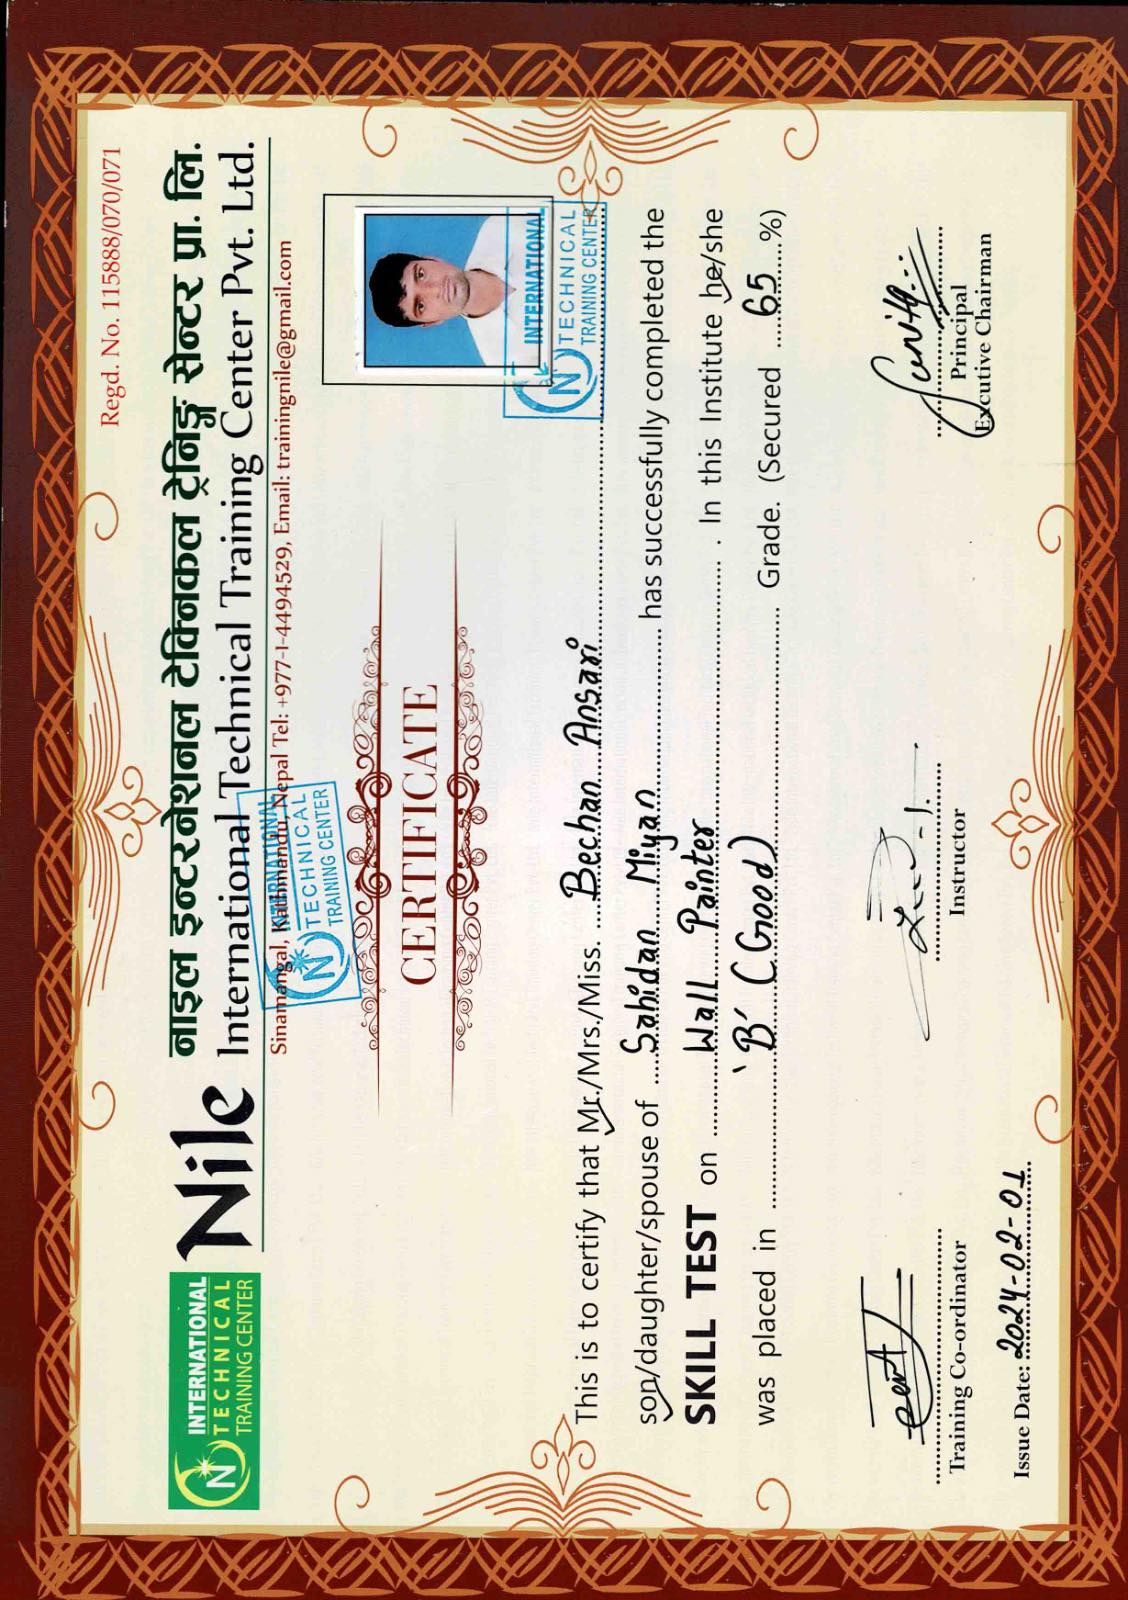 Regd. No. 115888/070/071
INTERNATIONAL
TECHNICAL
TRAINING CENTER
N
Nile
नाइल इन्टरनेशनल टेक्निकल ट्रेनिङ्ग सेन्टर प्रा. लि.
International Technical Training Center Pvt. Ltd.
Sinamangal, Kathmandu, Nepal Tel: +977-1-4494529, Email: trainingnile@gmail.com
INTERNATIONAL
TECHNICAL
TRAINING CENTER
N
CERTIFICATE
INTERNATIONAL
TECHNICAL
TRAINING CENTER
N
This is to certify that Mr./Mrs./Miss. Bechan Ansari
son/daughter/spouse of Sahidan Miyan has successfully completed the
SKILL TEST on Wall Painter . In this Institute he/she
was placed in 'B' (Good) Grade. (Secured 65 %)
Training Co-ordinator
Instructor
Principal
Executive Chairman
Issue Date: 2024-02-01